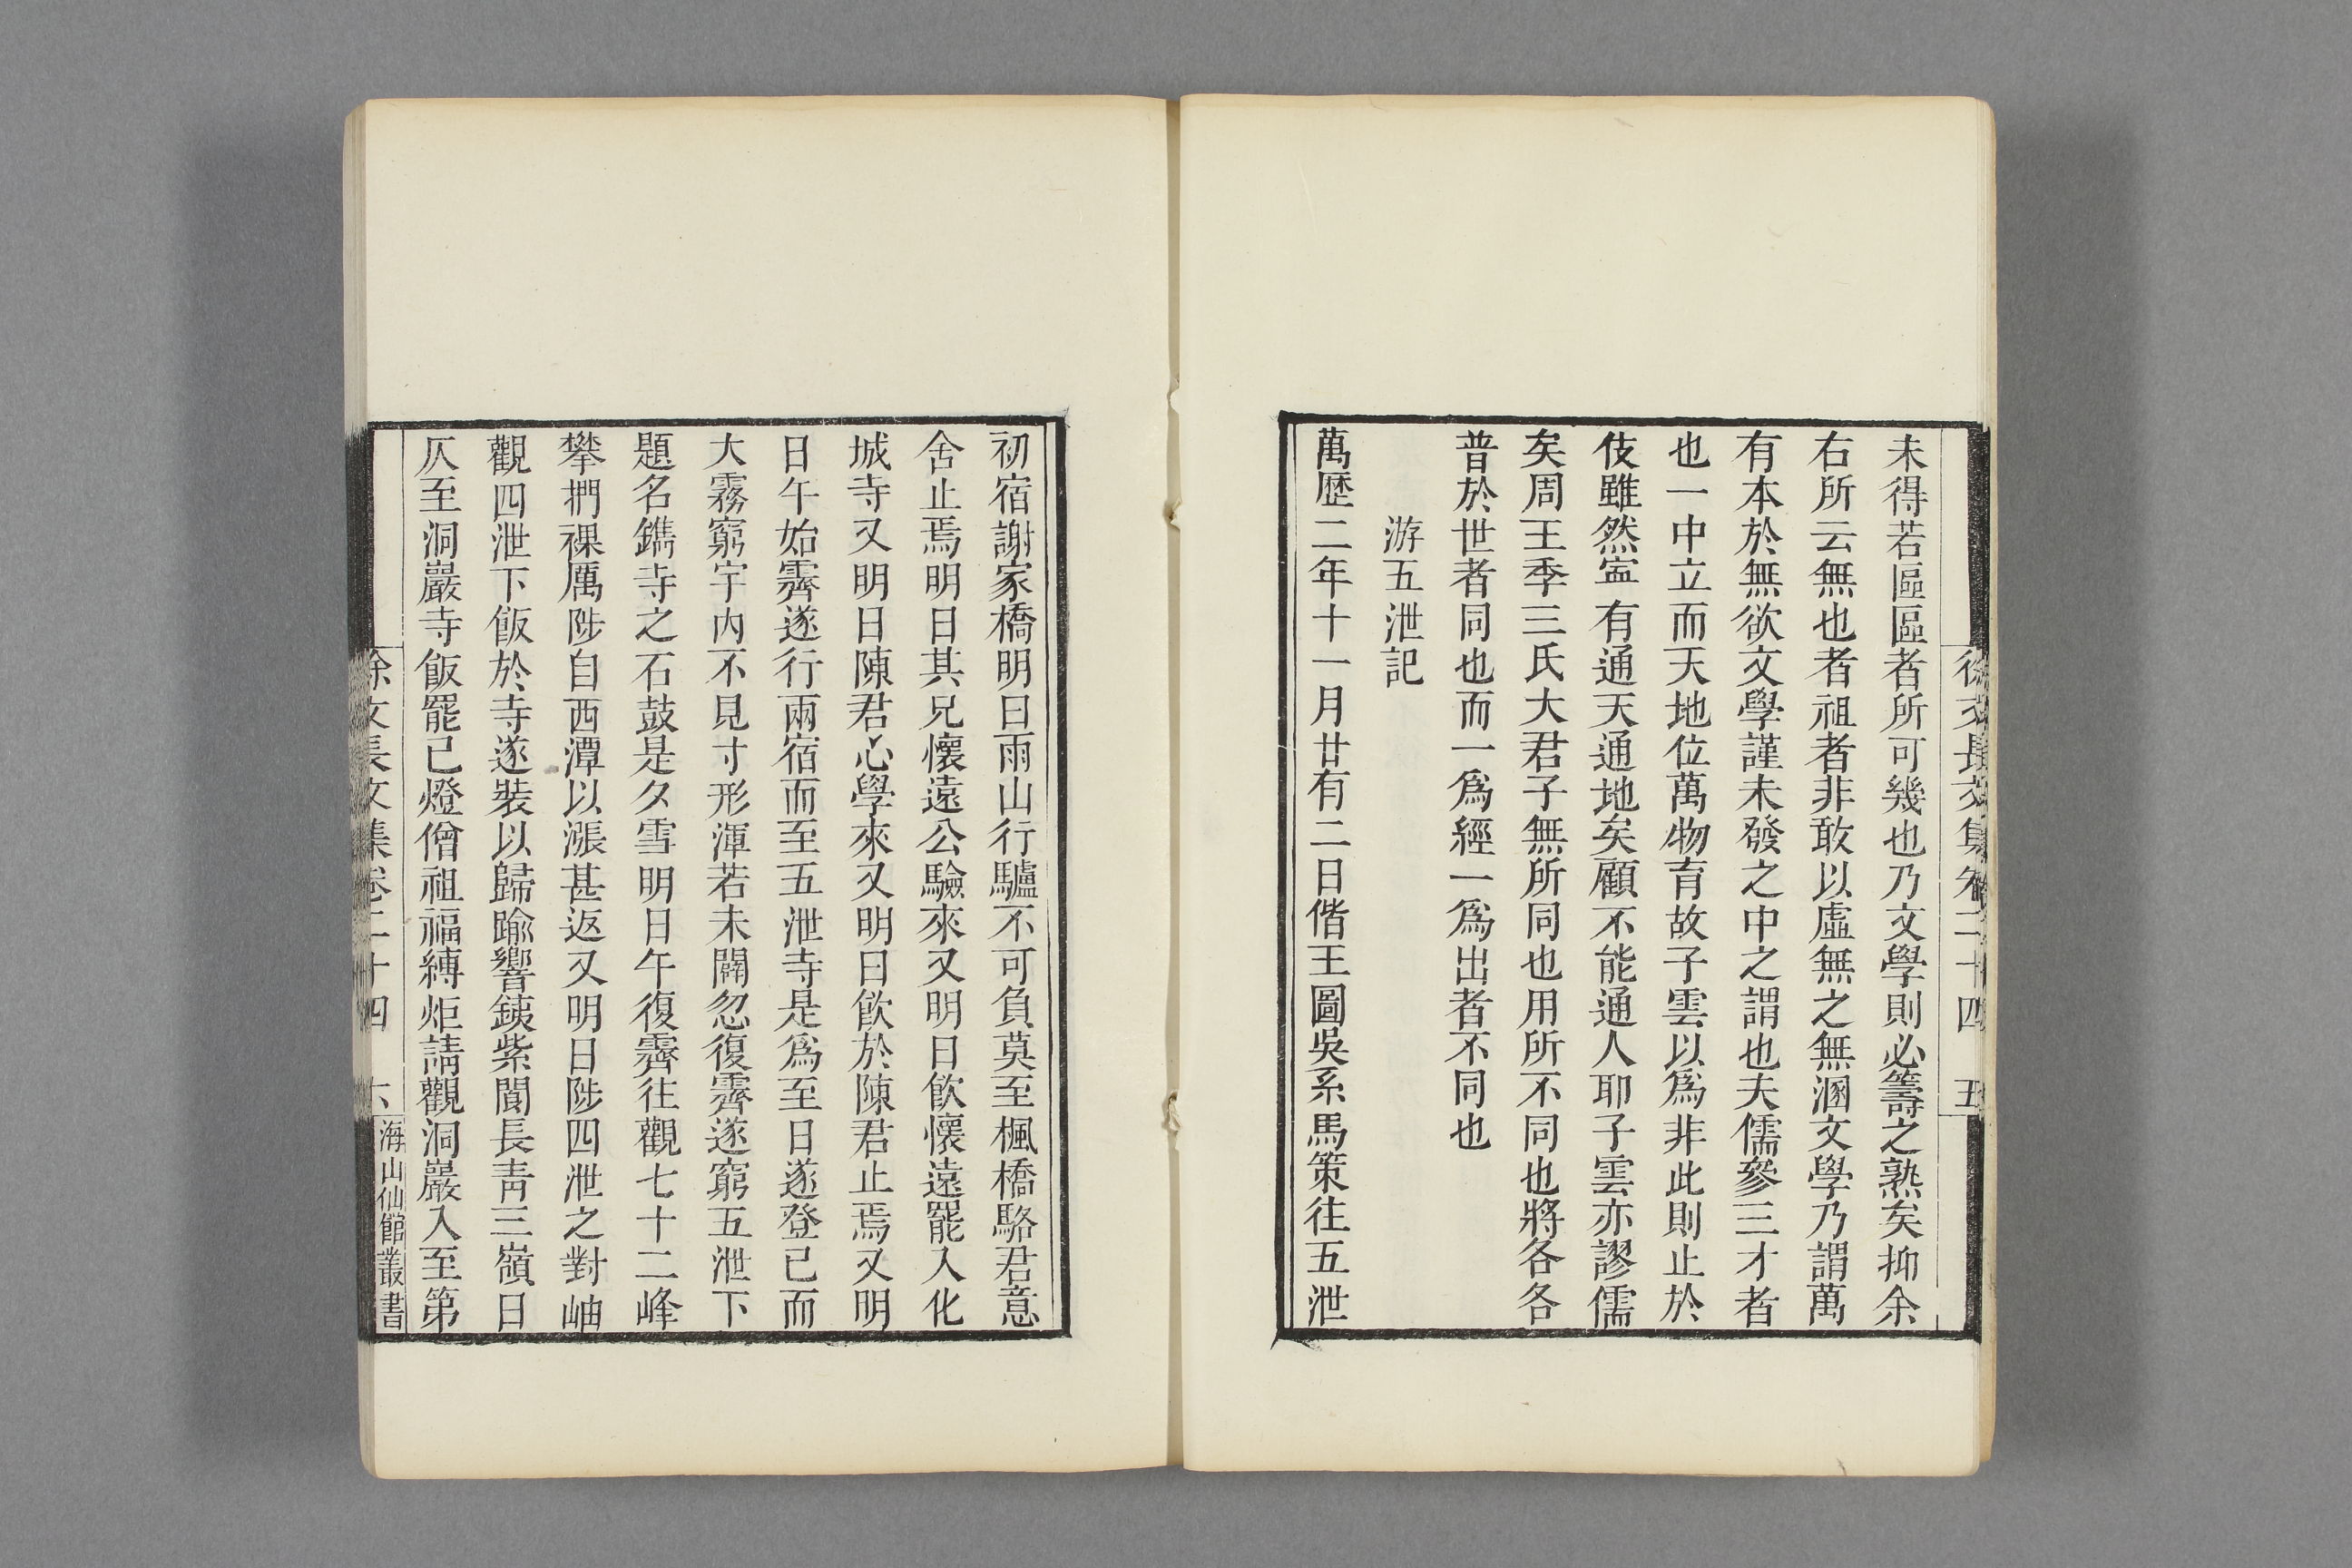 徐文長文集卷二十四 五
未得若區區者所可幾也乃文學則必籌之熟矣抑余
右所云無也者祖者非敢以虛無之無溷文學乃謂萬
有本於無欲文學謹未發之中之謂也夫儒參三才者
也一中立而天地位萬物育故子雲以爲非此則止於
伎雖然寍有通天通地矣顧不能通人耶子雲亦謬儒
矣周王季三氏大君子無所同也用所不同也將各各
普於世者同也而一爲經一爲出者不同也
游五泄記
萬歷二年十一月廿有二日偕王圖吳系馬策往五泄
初宿謝家橋明日雨山行驢不可負莫至楓橋駱君意
舍止焉明日其兄懷遠公驗來又明日飲懷遠罷入化
城寺又明日陳君心學來又明日飲於陳君止焉又明
日午始霽遂行兩宿而至五泄寺是爲至日遂登已而
大霧窮宇內不見寸形渾若未闢忽復霽遂窮五泄下
題名鐫寺之石鼓是夕雪明日午復霽往觀七十二峰
攀捫裸厲陟自西潭以漲甚返又明日陟四泄之對岫
觀四泄下飯於寺遂裝以歸踰響鐵紫閬長青三嶺日
仄至洞巖寺飯罷已燈僧祖福縛炬請觀洞巖入至第
徐文長文集卷二十四 六 海山仙館叢書